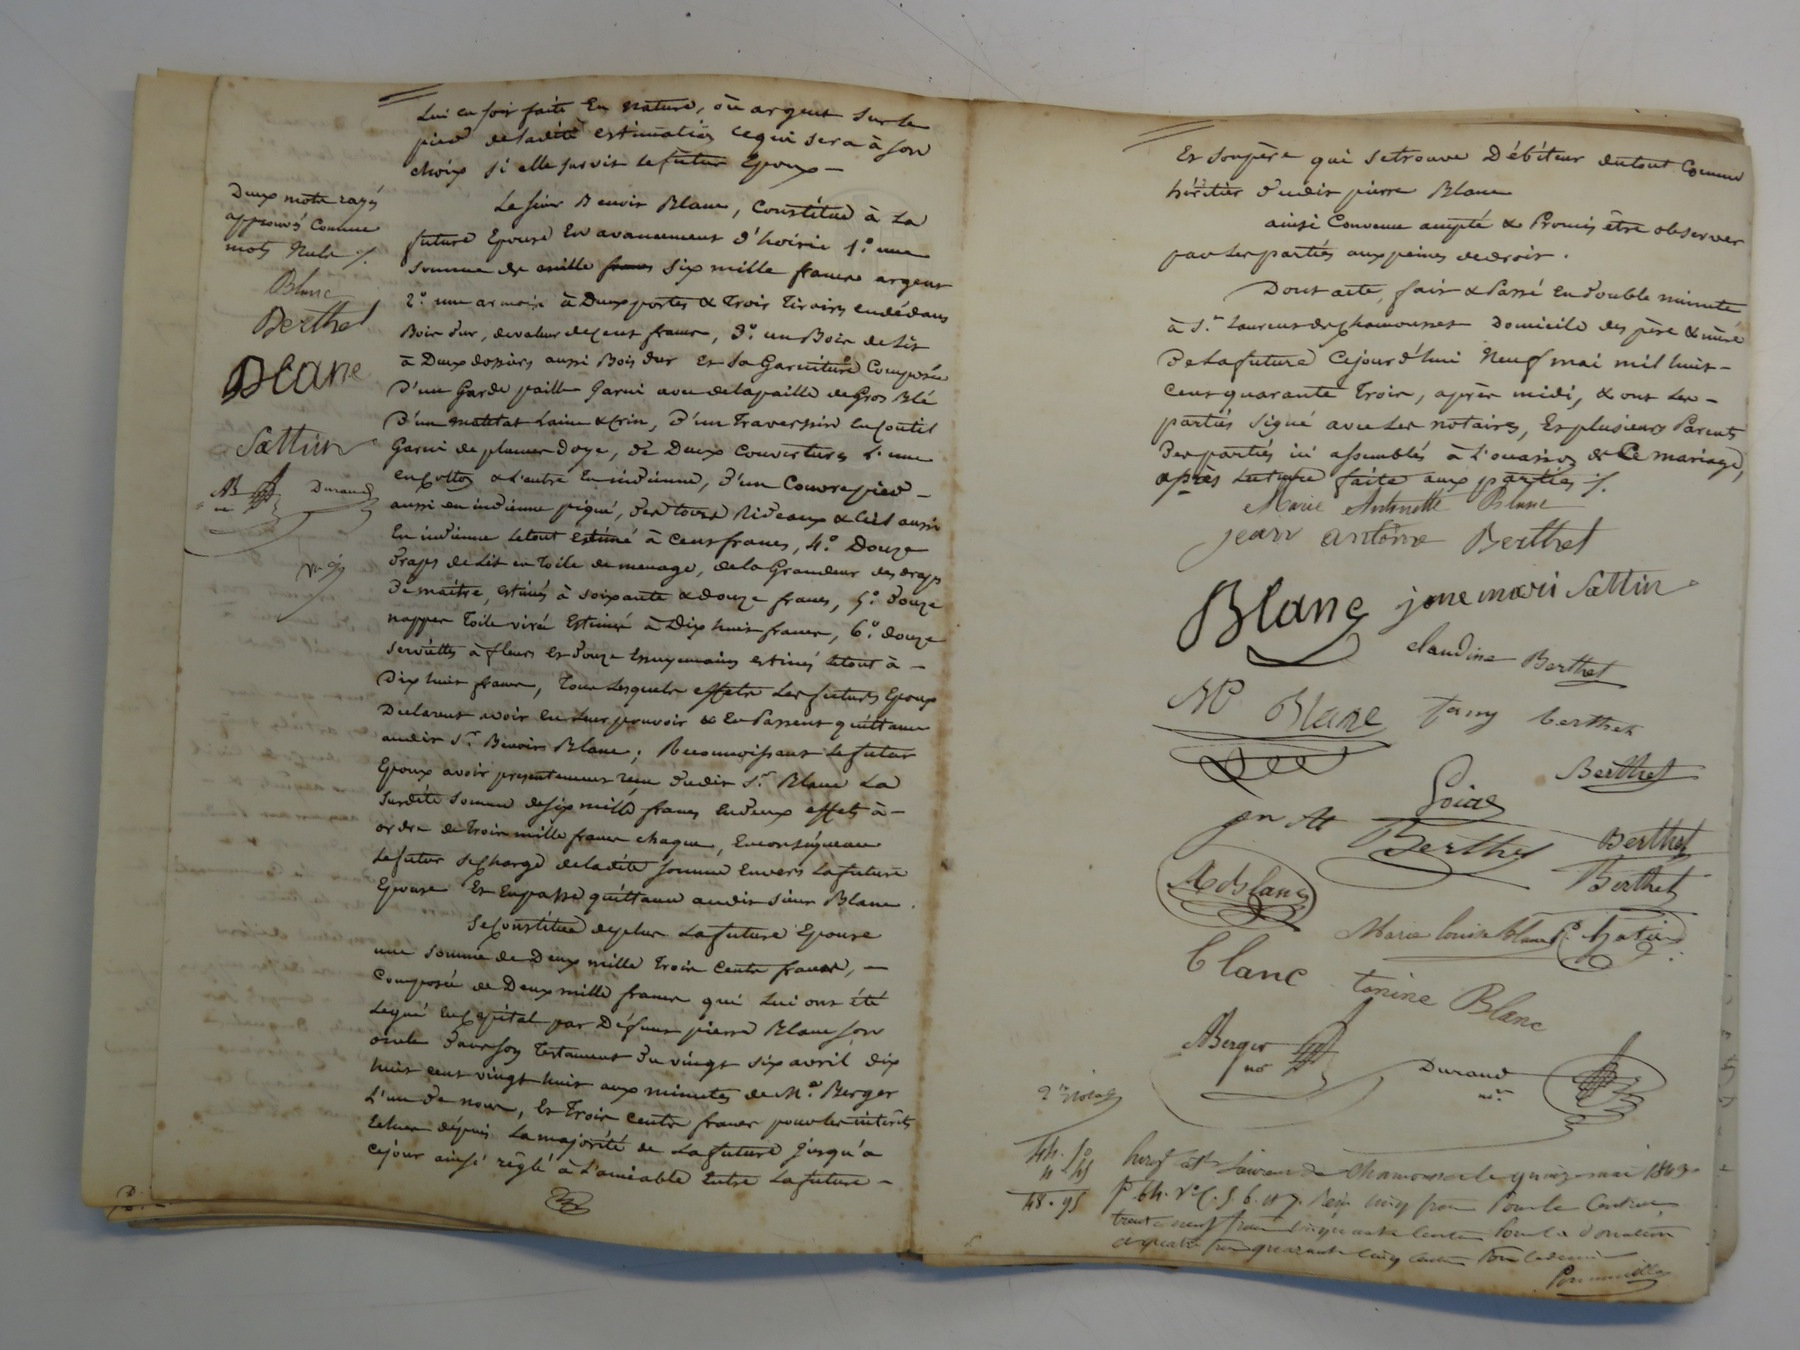 Lui en soit faite En nature, ou argent sur le
pied de ladite estimation ce qui sera à son
choix si elle survit le futur Epoux —
Le sieur Benoit Blanc, Constitue à La
future Epouse En avancement d'hoirie 1.° une
somme de mille francs six mille francs argent
2.° une armoire à Deux portes & Trois Tiroirs en dédans
Bois dur, de valeur de cent francs, 3.° un Bois de Lit
à Deux dossiers aussi Bois dur Et sa Garniture Composée
D'une Garde paille Garni avec de la paille de Gros Blé
D'un matelat Laine & Crin, D'un Traversin En Coutil
Garni de plumes d'oye, de Deux Couvertures L'une
en Cotton & L'autre En indienne, D'un Couvrepied —
aussi en indienne piqué, des tours Rideaux & Ciel aussi
En indienne Le tout estimé à Cent francs, 4.° Douze
Draps de Lit en Toile de menage, de la Grandeur des draps
De maître, estimés à soixante & douze francs, 5.° Douze
nappes Toile virée Estimées à Dix huit francs, 6.° douze
serviettes à fleurs et Douze Essuymains estimés Le tout à —
Dix huit francs, Tous Lesquels effets Les futurs Epoux
Déclarent avoir En Leur pouvoir & En Passent quittance
audit S.r Benoit Blanc ; Reconnoissant Le futur
Epoux avoir presentement reçu dudit S.r Blanc La
susdite somme de six mille francs En Deux effets à —
ordre de Trois mille francs chaque, En conséquence
Le futur se charge de ladite somme Envers La future
Epouse Et En passe quittance audit sieur Blanc.
Se Constitue de plus La future Epouse
une somme de Deux mille Trois Cents francs, —
Composée de Deux mille francs qui Lui ont été
Légué En Capital par Défunt pierre Blanc son
oncle Dans son Testament Du vingt six avril dix
huit cent vingt huit aux minutes de M.e Berger
L'un De nous, Et Trois Cents francs pour les intérêts
Echus dépuis La majorité de La future jusqu'à
ce jour ainsi réglé à L'amiable Entre La future —
Deux mots rayés
approuvés Comme
mots Nuls ./.
Blanc
Berthet
Blanc
Sattin
AB Durand
Et son père qui se trouve Débiteur du tout Comme
héritier Dudit pierre Blanc
ainsi Convenu accepté & Promis être observer
par Les parties aux peines de droit.
Dont acte, fait & Passé En Double minute
à S.t Laurent de Chamousset Domicile des père & mère
De La future Ce jourd'hui Neuf mai mil huit —
Cent quarante Trois, après midi, & ont Les —
parties signé avec Les notaires, Et plusieurs Parents
Des parties ici assemblés à L'occasion de Ce mariage,
après Lecture faite aux parties ./.
Marie Antoinette Blanc
jean antoine Berthet
Blanc jane marie Sattin
claudine Berthet
Blanc fany berthet
Berthet
Berthet Berthet
Berthet
Marie louise Blanc
blanc tonine Blanc
ABerger no.re
Durand no.re
44. 50
4 45
48. 95
Enreg. à St Laurent de Chamousset le quinze mai 1843.
f° 64. V° C. 5. 6. et 7. Reçu cinq francs Pour le Contrat
trente neuf francs cinquante Centes Pour la donation
et quatre francs quarante cinq Centes Pour le decime